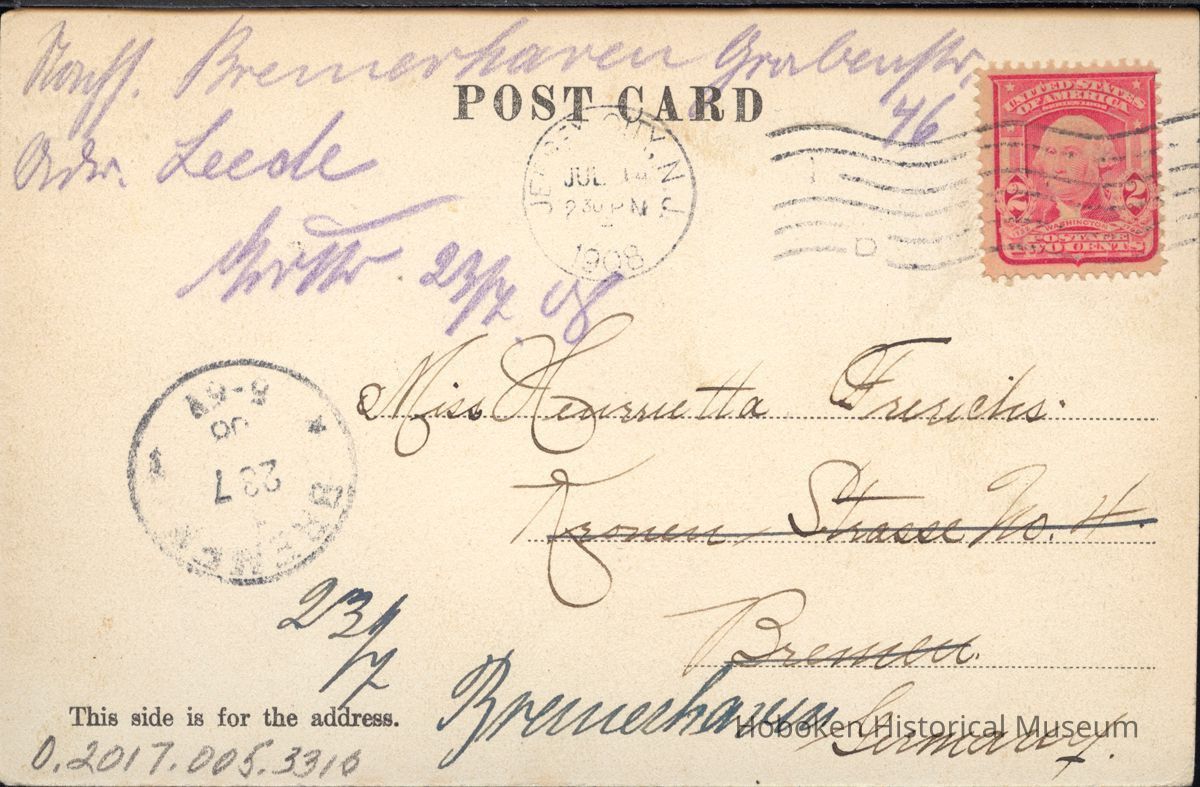 Bremerhaven Grabenstr.
46
POST CARD
Adr. Leede
23/7. 08
JERSEY CITY, N.J.
JUL 14
2 30 PM
1908
UNITED STATES
OF AMERICA
SERIES 1902
2 2
WASHINGTON
POSTAGE
TWO CENTS
D
Miss Henrietta Frerichs.
Kronen Strasse No. 4.
Bremen.
Bremerhaven
Germany.
BREMEN
23 7
08
23/7
This side is for the address.
Hoboken Historical Museum
0.2017.005.3310